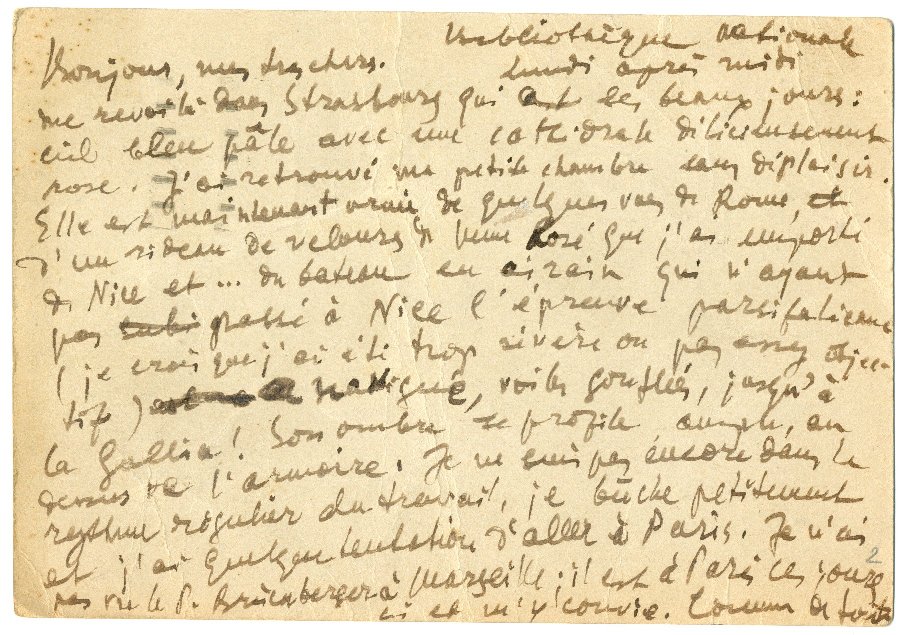 Bibliothèque nationale
Bonjour, mes très chers. Lundi après midi
me revoilà dans Strasbourg qui a ses beaux jours :
ciel bleu pâle avec une cathédrale délicieusement
rose. J'ai retrouvé ma petite chambre sans déplaisir.
Elle est maintenant ornée de quelques vues de Rome, et
d'un rideau de velours rosé que j'ai emporté
de Nice et ... du bateau en airain qui n'ayant
pas subi passé à Nice l'épreuve parsifalienne
(je crois que j'ai été trop sévère ou pas assez objec-
tif) a navigué, voiles gonflées, jusqu'à
la Gallia! Son ombre se profile ample, au
dessus de l'armoire. Je ne suis pas encore dans le
rythme régulier du travail, je bûche petitement
et j'ai quelque tentation d'aller à Paris. Je n'ai
pas vu le P. à Marseille; il est à Paris ces jours
ci et m'y convie. Comme de
2